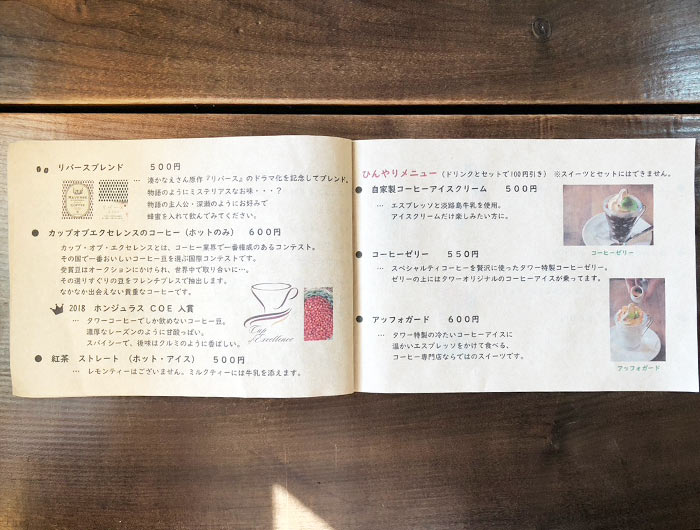 リバースブレンド 500円
… 湊かなえさん原作『リバース』のドラマ化を記念してブレンド。
物語のようにミステリアスなお味・・・?
物語の主人公・深瀬のようにお好みで
蜂蜜を入れて飲んでみてください。
カップオブエクセレンスのコーヒー(ホットのみ) 600円
カップ・オブ・エクセレンスとは、コーヒー業界で一番権威のあるコンテスト。
その国で一番おいしいコーヒー豆を選ぶ国際コンテストです。
受賞豆はオークションにかけられ、世界中で取り合いに…。
その選りすぐりの豆をフレンチプレスで抽出します。
なかなか出会えない貴重なコーヒーです。
2018 ホンジュラス COE 入賞
… タワーコーヒーでしか飲めないコーヒー豆。
濃厚なレーズンのように甘酸っぱい。
スパイシーで、後味はクルミのように香ばしい。
Cup
of Excellence
紅茶 ストレート (ホット・アイス) 500円
… レモンティーはございません。ミルクティーには牛乳を添えます。
ひんやりメニュー (ドリンクとセットで100円引き) ※スイーツとセットにはできません。
自家製コーヒーアイスクリーム 500円
… エスプレッソと淡路島牛乳を使用。
アイスクリームだけ楽しみたい方に。
コーヒーゼリー
コーヒーゼリー 550円
… スペシャルティコーヒーを贅沢に使ったタワー特製コーヒーゼリー。
ゼリーの上にはタワーオリジナルのコーヒーアイスが乗ってます。
アッフォガード 600円
… タワー特製の冷たいコーヒーアイスに
温かいエスプレッソをかけて食べる、
コーヒー専門店ならではのスイーツです。
アッフォガード